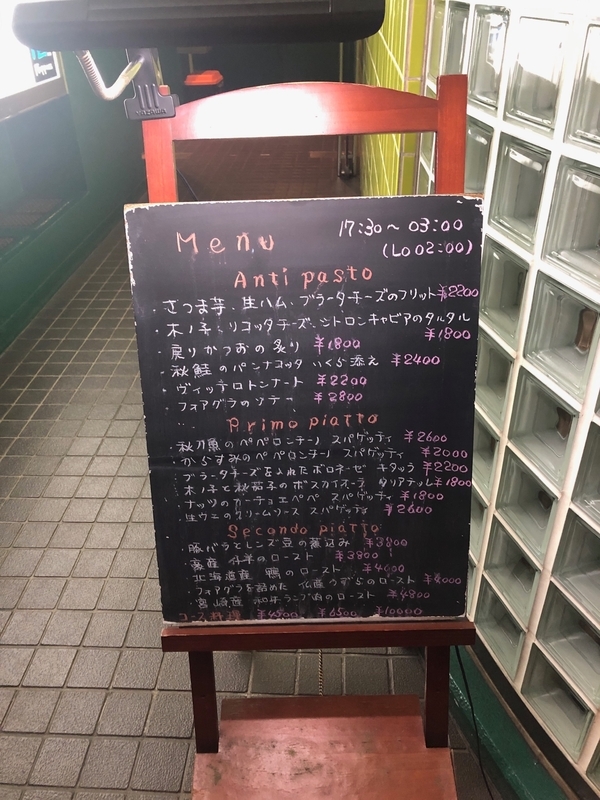 Menu
17:30〜03:00
(LO 02:00)
Antipasto
・さつま芋、生ハム、ブラータチーズのフリット ¥2200
・木ノ子、リコッタチーズ、シトロンキャビアのタルタル
¥1800
・戻りかつおの炙り ¥1800
・秋鮭のパンナコッタ いくら添え ¥2400
・ヴィッテロトンナート ¥2200
・フォアグラのソテー ¥2800
Primo piatto
・秋刀魚のペペロンチーノ スパゲッティ ¥2600
・からすみのペペロンチーノ スパゲッティ ¥2000
・ブラータチーズを入れたボロネーゼ キタッラ ¥2200
・木ノ子と秋茄子のボスカイオーラ タリアテッレ ¥1800
・ナッツのカーチョエペペ スパゲッティ ¥1800
・生ウニのクリームソース スパゲッティ ¥2600
Secondo piatto
・豚バラとレンズ豆の煮込み ¥3800
産 仔羊のロースト ¥3800
・北海道産 鴨のロースト
・フォアグラを詰めた 仏産 うずらのロースト
・宮崎産 和牛ランプ肉のロースト ¥4800
コース料理 ¥4500 ¥6500 ¥10000